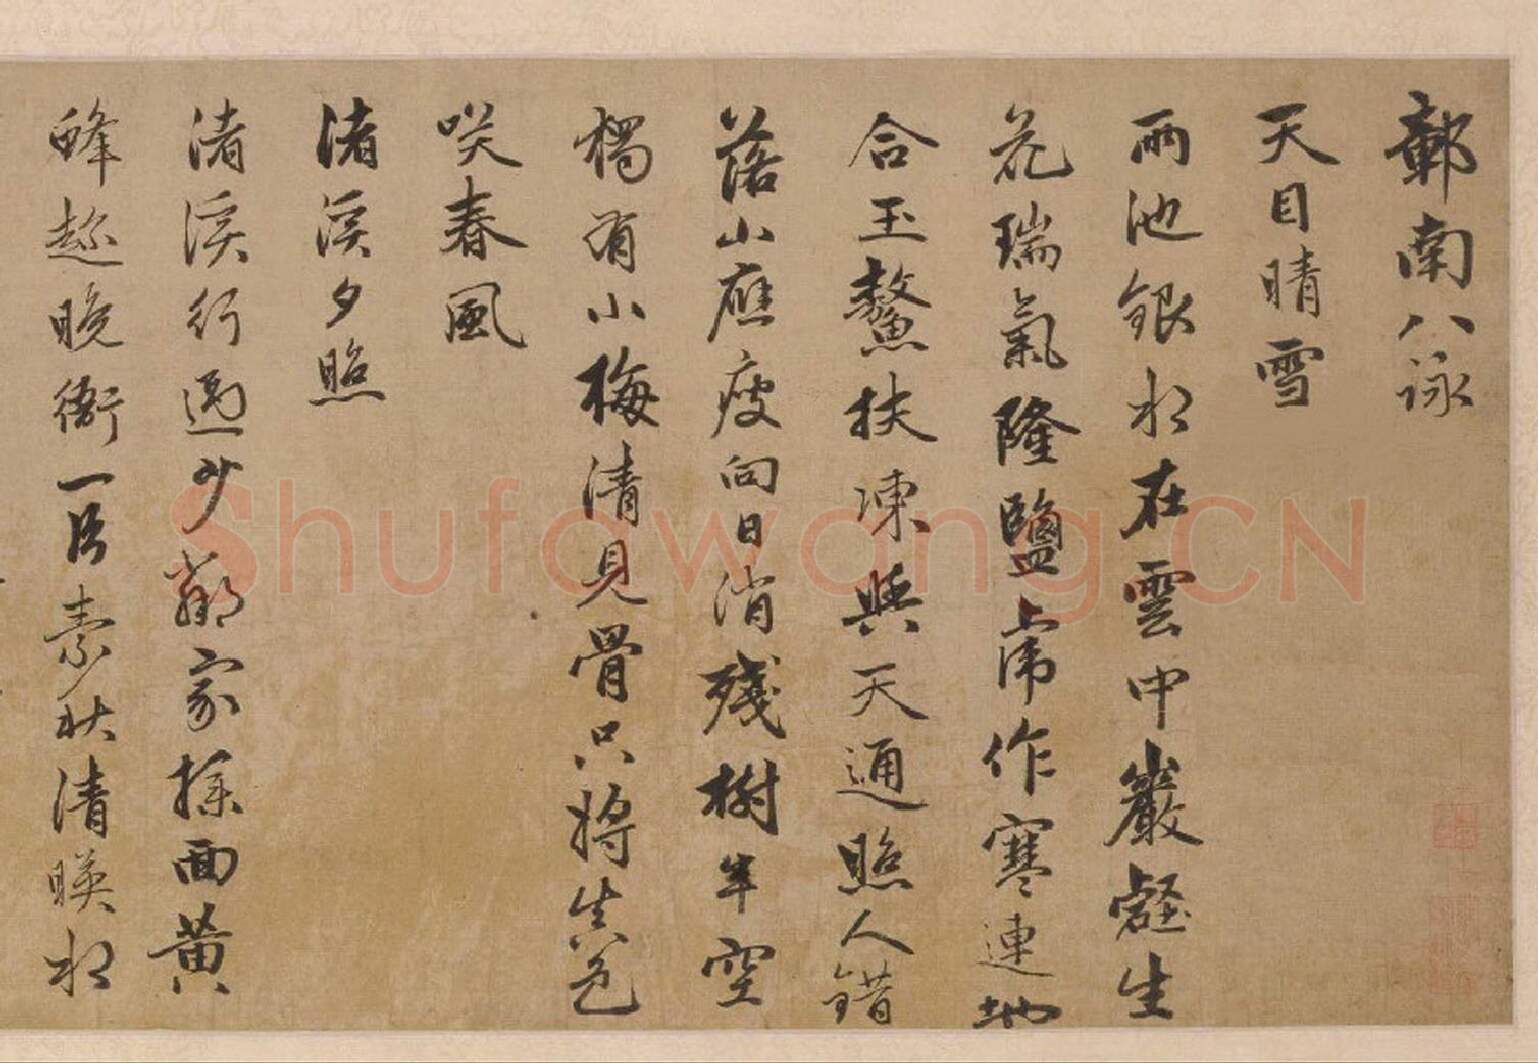 鄣南八詠
天目晴雪
兩池銀水在雲中巖壑生
花瑞氣隆鹽虎作寒連地
合玉鰲扶凍與天通照人錯
落山應瘦向日消殘樹半空
獨有小梅清見骨只將生色
笑春風
渚溪夕照
渚溪行過少鄰家採面黃
蜂趂晚衙一片素秋清暎水
ShufawangCN